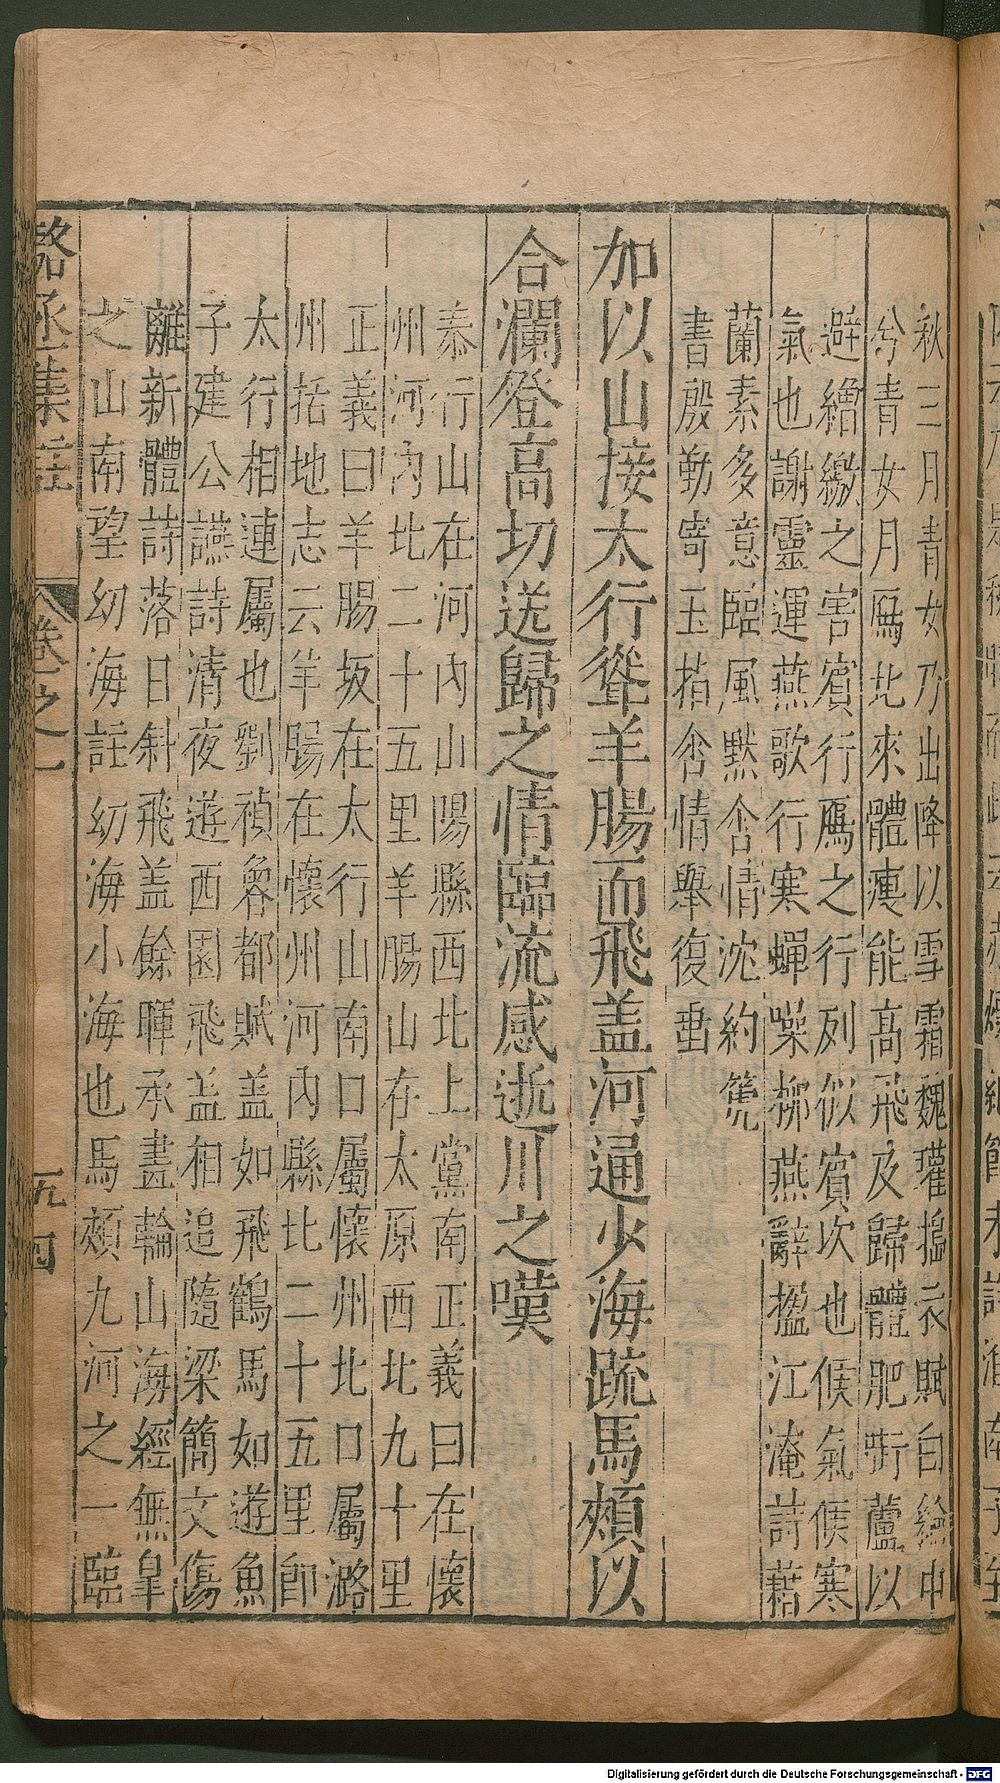 秋三月青女乃出降以雪霜魏瓘搗衣賦白綸中
兮青女月雁北來體瘦能高飛及歸體肥銜蘆以
避繒繳之害賓行鴈之行列似賓次也候氣候寒
氣也謝靈運燕歌行寒蟬噪柳燕辭楹江淹詩藉
蘭素多意臨風默含情沈約箎
書殷勤寄玉指含情舉復垂
加以山接太行聳羊腸而飛盖河通少海疏馬頰以
合瀾登高切送歸之情臨流感逝川之嘆
泰行山在河內山陽縣西北上黨南正義曰在懷
州河內北二十五里羊腸山在太原西北九十里
正義曰羊腸坂在太行山南口屬懷州北口屬潞
州括地志云羊腸在懷州河內縣北二十五里卽
太行相連屬也劉楨魯都賦盖如飛鶴馬如遊魚
子建公讌詩清夜遊西園飛盖相追隨梁簡文傷
離新體詩落日斜飛盖餘暉承畫輪山海經無皐
之山南望幼海註幼海小海也馬頰九河之一臨
駱丞集註
卷之一
五四
Digitalisierung gefördert durch die Deutsche Forschungsgemeinschaft - DFG